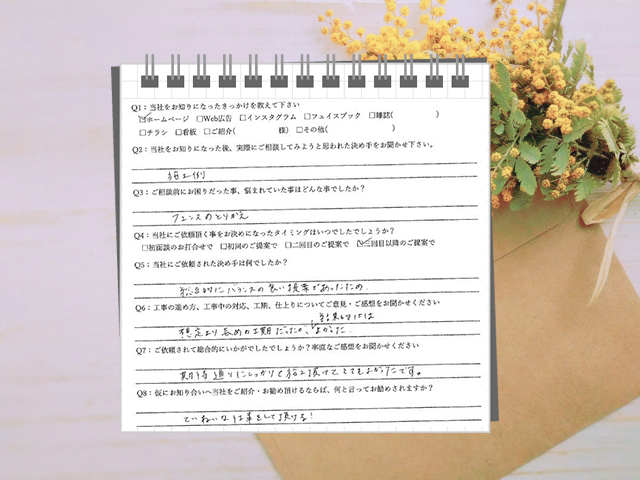 Q1：当社をお知りになったきっかけを教えて下さい
☑ホームページ □Web広告 □インスタグラム □フェイスブック □雑誌( )
□チラシ □看板 □ご紹介( 様) □その他( )
Q2：当社をお知りになった後、実際にご相談してみようと思われた決め手をお聞かせ下さい。
施工例
Q3：ご相談前にお困りだった事、悩まれていた事はどんな事でしたか？
フェンスのとりかえ
Q4：当社にご依頼頂く事をお決めになったタイミングはいつでしたでしょうか？
□初面談のお打合せで □初回のご提案で □二回目のご提案で ☑三回目以降のご提案で
Q5：当社にご依頼された決め手は何でしたか？
総合的にバランスの良い提案であったため.
Q6：工事の進め方、工事中の対応、工期、仕上りについてご意見・ご感想をお聞かせください
結果的には
想定より長めの工期だったが、よかった.
Q7：ご依頼されて総合的にいかがでしたでしょうか？率直なご感想をお聞かせください
期待通りにしっかりと施工頂けてとてもよかったです。
Q8：仮にお知り合いへ当社をご紹介・お勧め頂けるならば、何と言ってお勧めされますか？
ていねいな仕事をして頂ける！